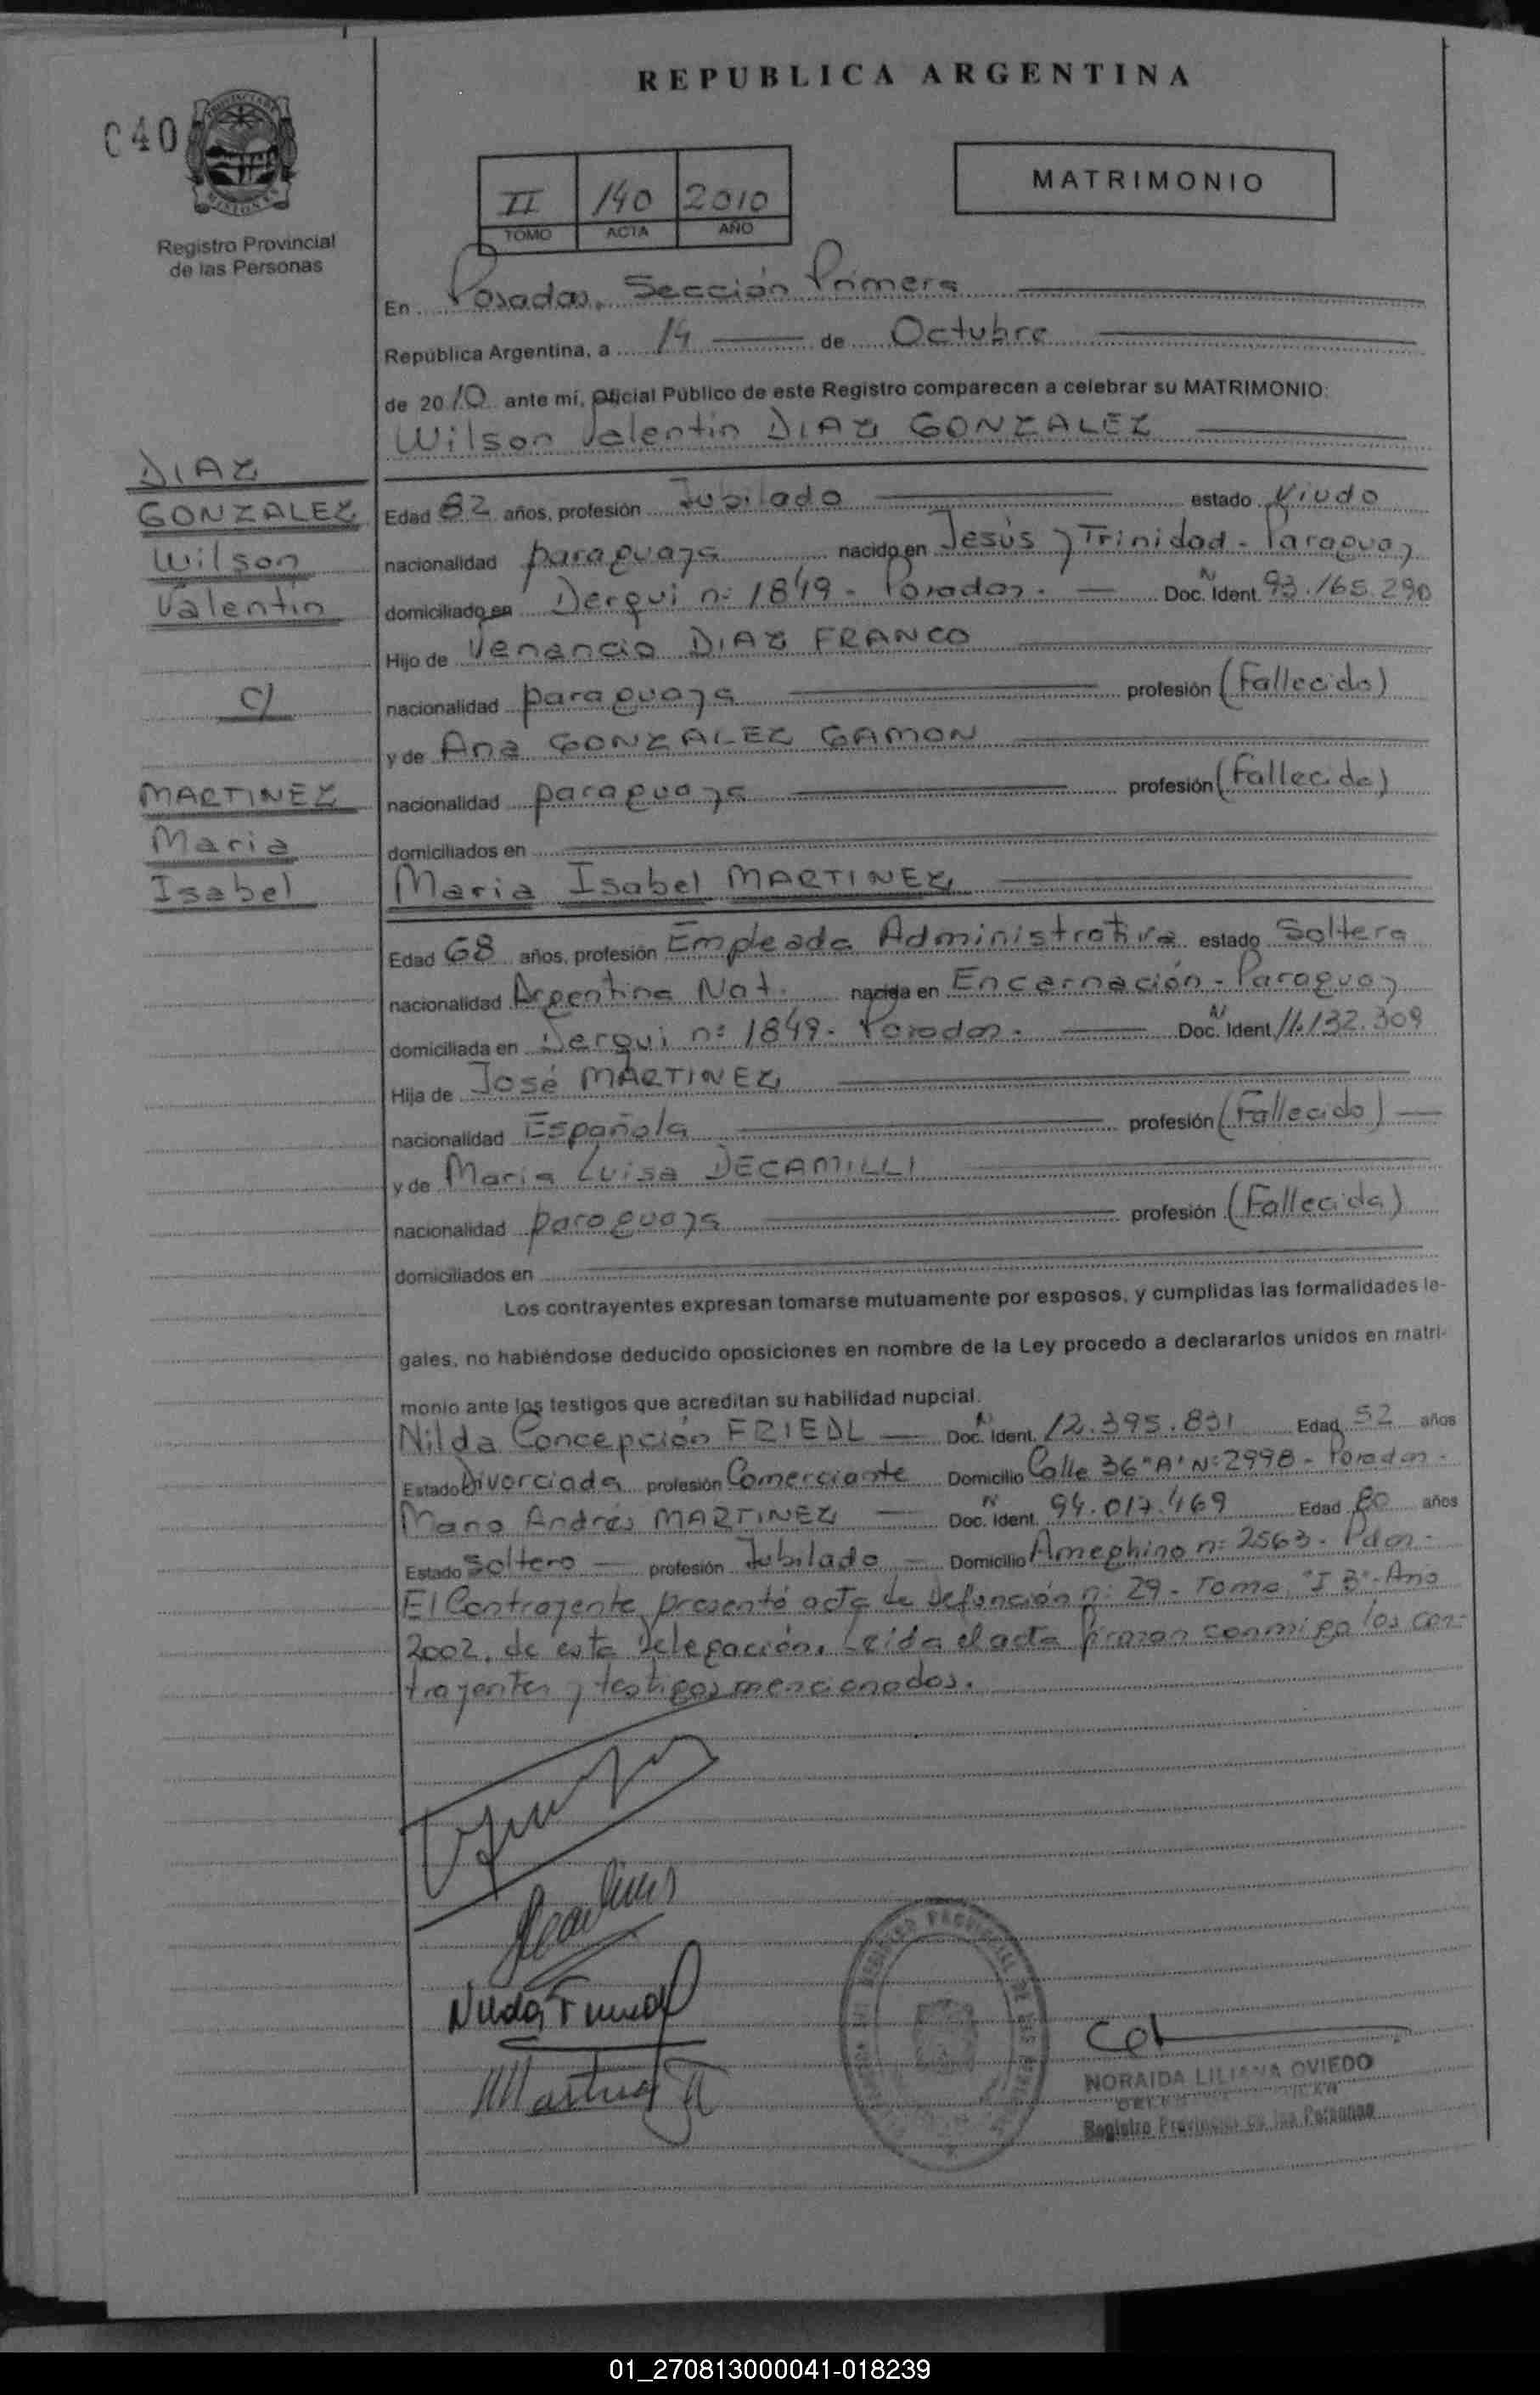 REPUBLICA ARGENTINA
040
MATRIMONIO
II 140 2010
TOMO ACTA AÑO
Registro Provincial
de las Personas
En Posadas, Sección Primera
República Argentina, a 14 de Octubre
de 2010 ante mí, Oficial Público de este Registro comparecen a celebrar su MATRIMONIO:
Wilson Valentin DIAZ GONZALEZ
DIAZ
GONZALEZ
Wilson
Valentin
c/
MARTINEZ
Maria
Isabel
Edad 82 años, profesión Jubilado estado Viudo
nacionalidad paraguaya nacido en Jesús y Trinidad - Paraguay
domiciliado en Derqui nº 1849 - Posadas. - Doc. Nº Ident. 93.165.290
Hijo de Venancio DIAZ FRANCO
nacionalidad paraguaya profesión (Fallecido)
y de Ana GONZALEZ GAMON
nacionalidad paraguaya profesión (Fallecida)
domiciliados en
Maria Isabel MARTINEZ
Edad 68 años, profesión Empleada Administrativa estado Soltera
nacionalidad Argentina Nat. nacida en Encarnación - Paraguay
domiciliada en Derqui nº 1849 - Posadas. - Doc. Nº Ident. 11.132.309
Hija de José MARTINEZ
nacionalidad Española profesión (Fallecido)
y de Maria Luisa DECAMILLI
nacionalidad paraguaya profesión (Fallecida)
domiciliados en
Los contrayentes expresan tomarse mutuamente por esposos, y cumplidas las formalidades le-
gales, no habiéndose deducido oposiciones en nombre de la Ley procedo a declararlos unidos en matri-
monio ante los testigos que acreditan su habilidad nupcial.
Nilda Concepción FRIEDL - Doc. Nº Ident. 12.395.831 Edad 52 años
Estado Divorciada profesión Comerciante Domicilio Calle 36 "A" Nº 2998 - Posadas -
Mario Andrés MARTINEZ - Doc. Nº Ident. 94.017.469 Edad 80 años
Estado Soltero - profesión Jubilado - Domicilio Ameghino nº 2563 - Pdas -
El Contrayente, presentó acta de Defunción nº 29 - Tomo "I B" - Año
2002, de esta Delegación. Leída el acta firman conmigo los con-
trayentes y testigos mencionados.
NORAIDA LILIANA OVIEDO
Registro Provincial de las Personas
01_270813000041-018239